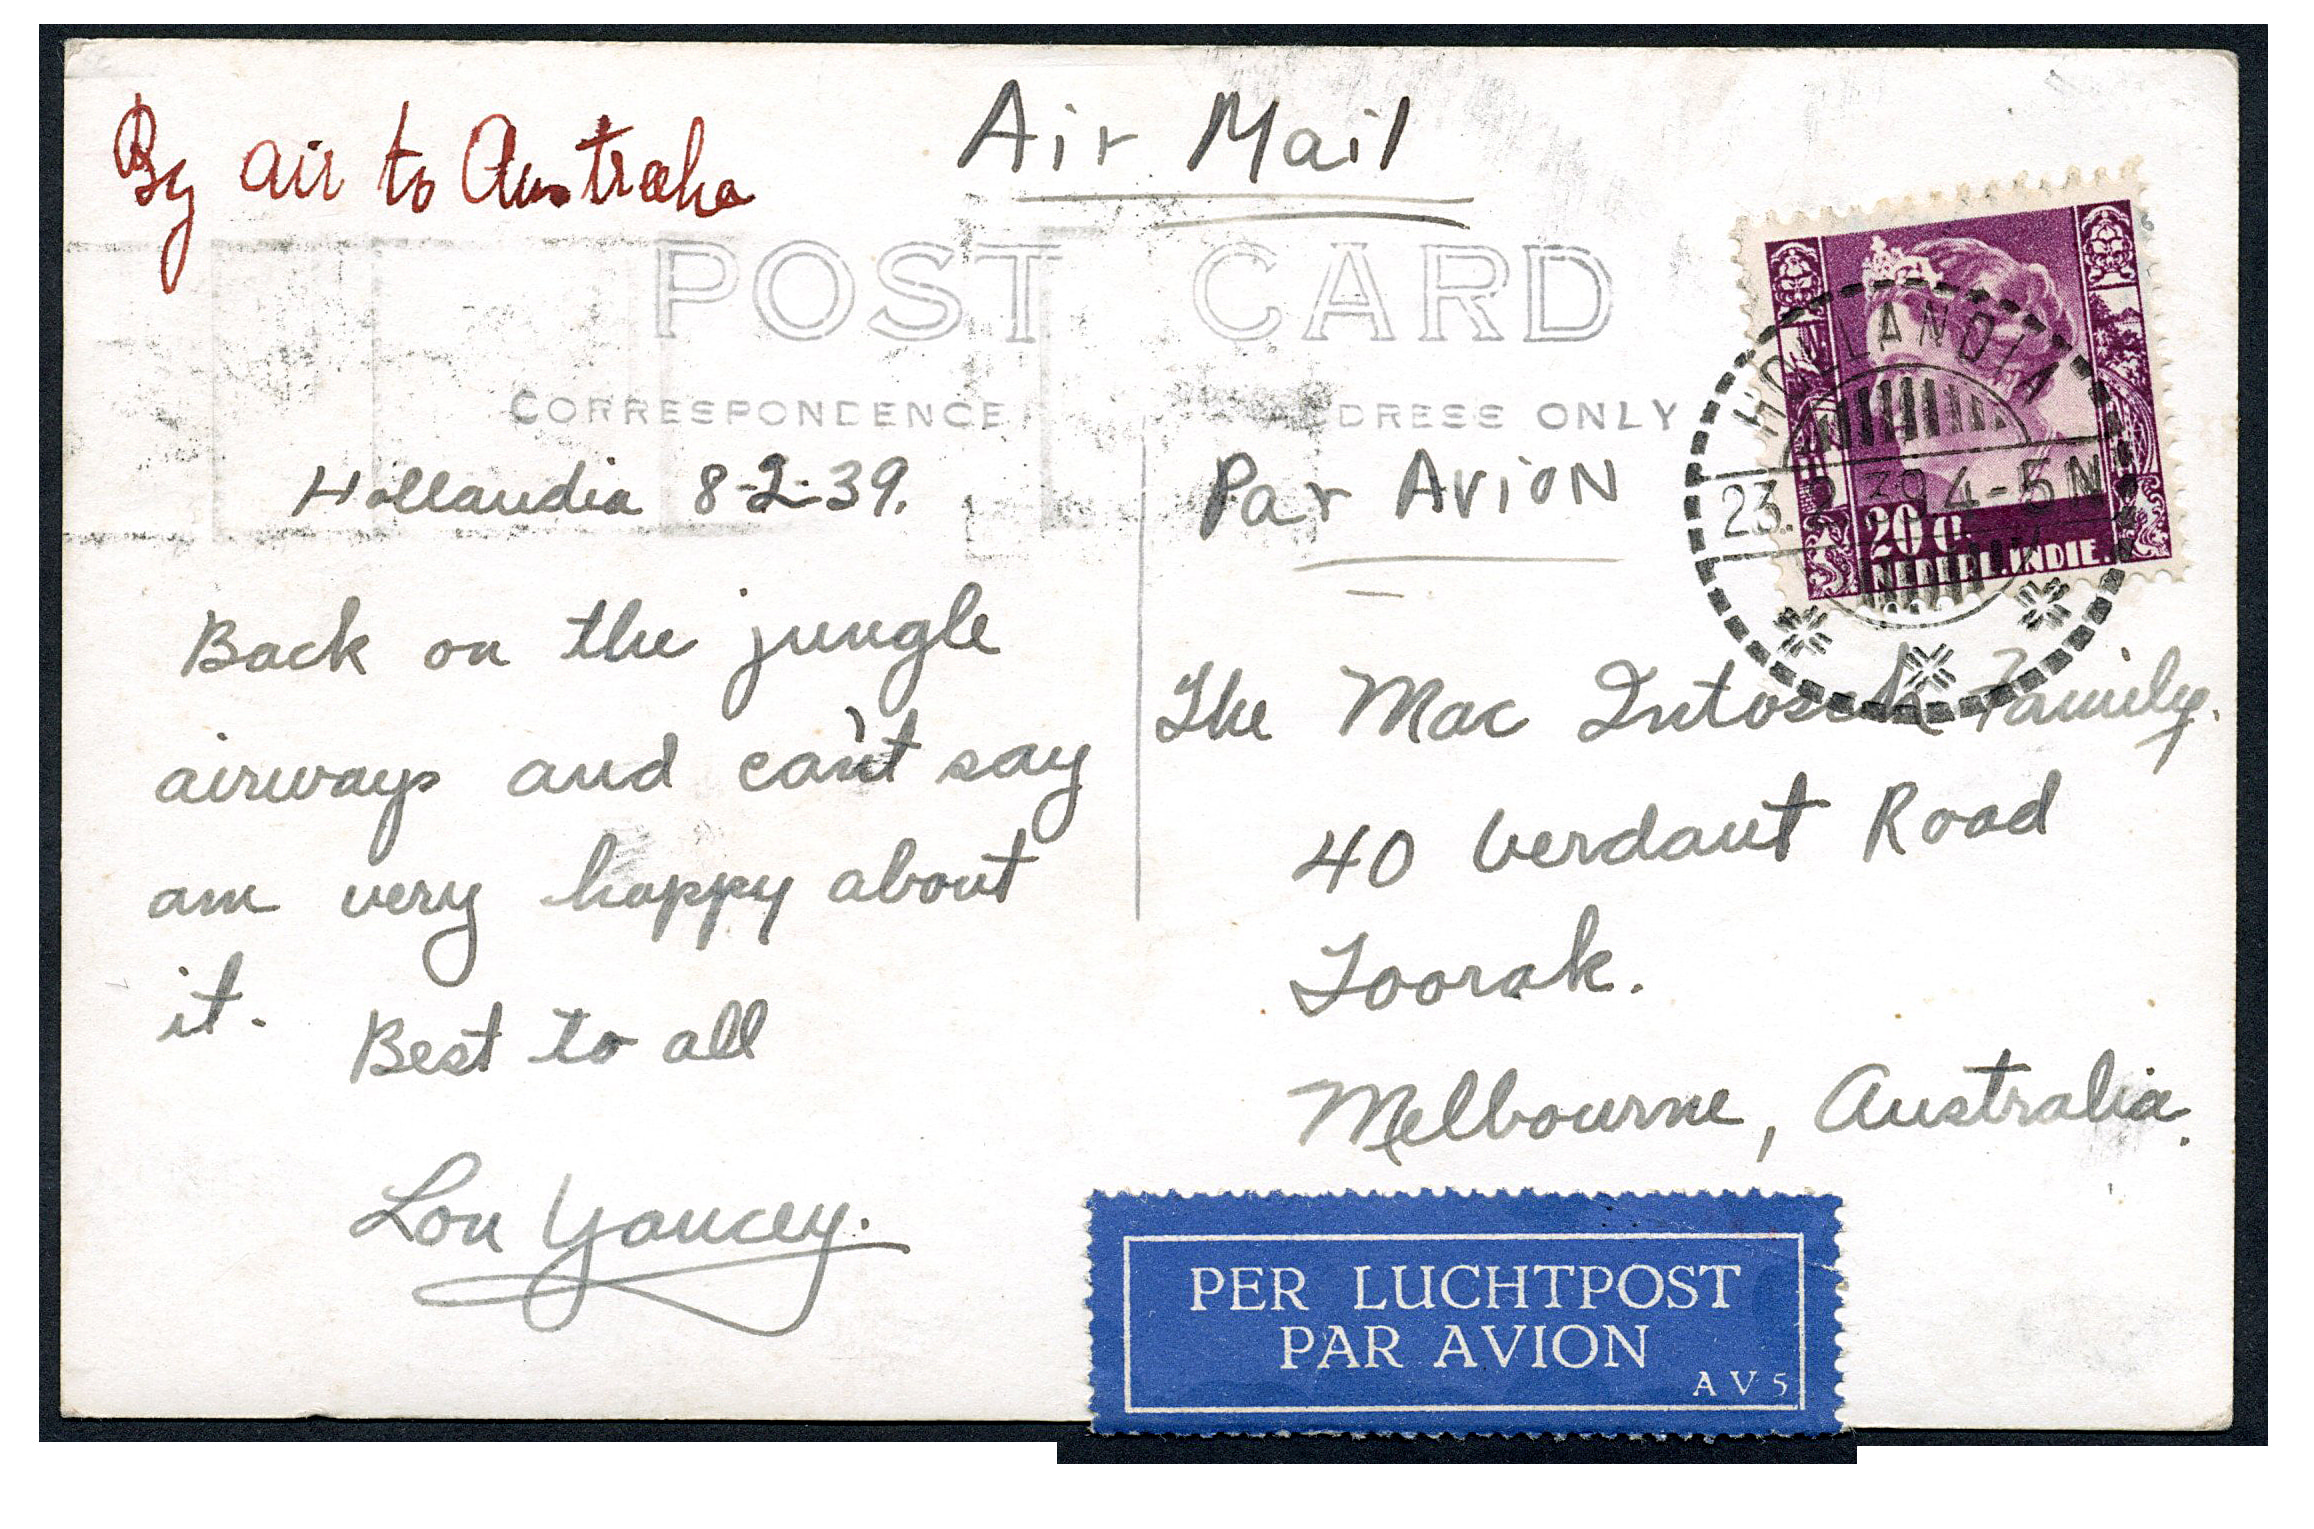 By air to Australia
Air Mail
POST CARD
CORRESPONDENCE
ADDRESS ONLY
Hollandia 8-2-39.
Back on the jungle
airways and can't say
am very happy about
it.
Best to all
Lou Yancey.
Par AvioN
HOLLANDIA
23.2.39.4-5N
20 C.
NEDERL.INDIE.
The Mac Intosch Family.
40 Verdant Road
Toorak.
Melbourne, Australia.
PER LUCHTPOST
PAR AVION
AV5